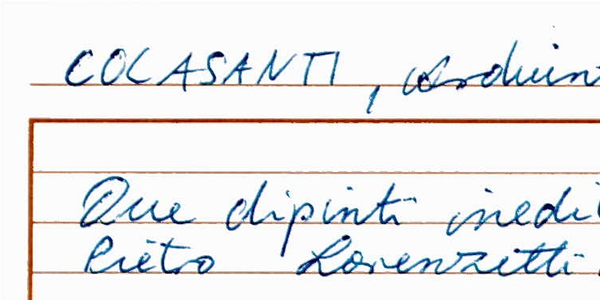 COLASANTI, Arduin
Due dipinti inedi
Pietro Lorenzetti.